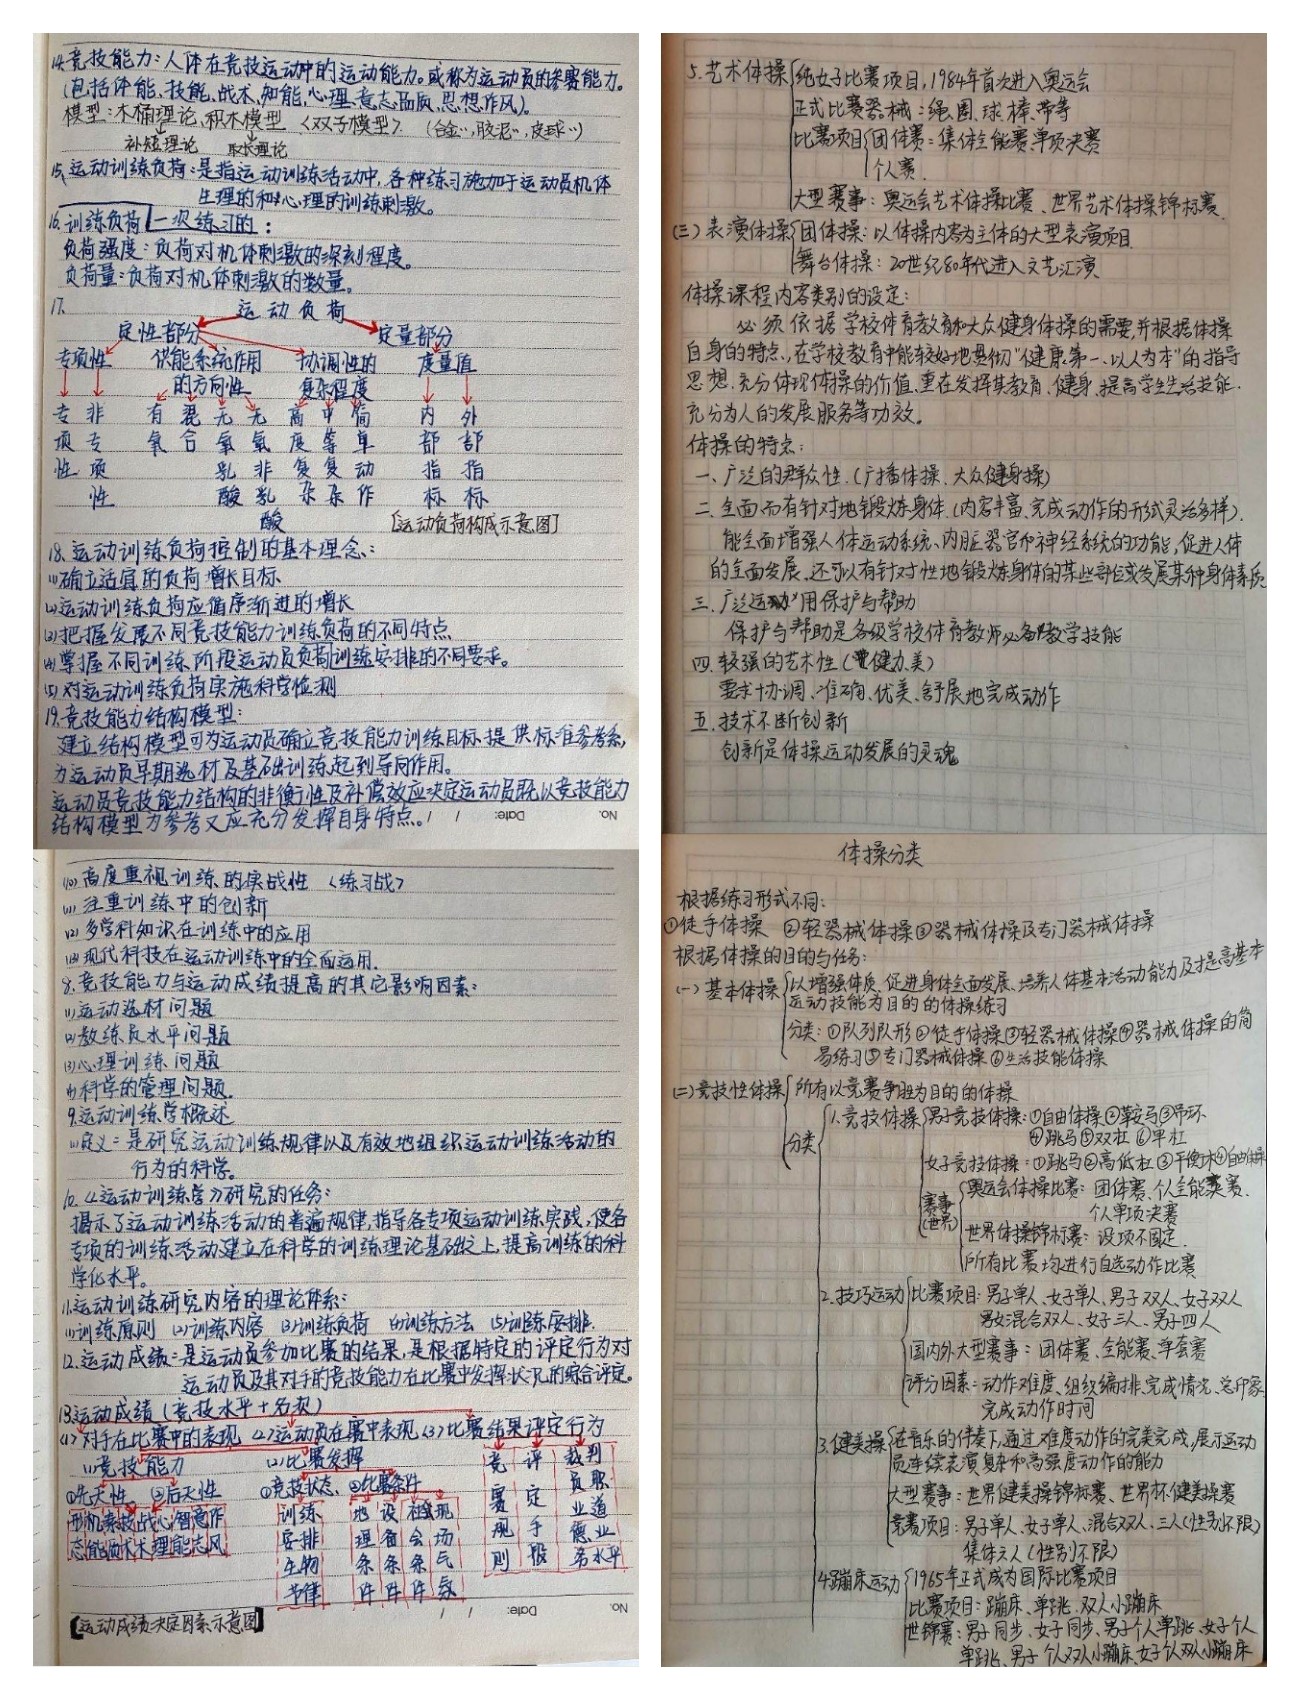 14.竞技能力：人体在竞技运动中的运动能力。或称为运动员的参赛能力。
(包括体能、技能、战术、知能、心理、意志品质、思想作风)。
模型：木桶理论、积木模型 〈双子模型〉 (合金'',胶泥'',皮球'')
补短理论 取长理论
15、运动训练负荷：是指运动训练活动中,各种练习施加于运动员机体
生理的和心理的训练刺激。
16.训练负荷 一次练习的：
负荷强度：负荷对机体刺激的深刻程度。
负荷量：负荷对机体刺激的数量。
17. 运动负荷
定性部分 定量部分
专项性 供能系统作用 协调性的 度量值
的方向性 复杂程度
专 非 有 混 无 无 高 中 简 内 外
项 专 氧 合 氧 氧 度 等 单 部 部
性 项 乳 非 复 复 动 指 指
性 酸 乳 杂 杂 作 标 标
酸 [运动负荷构成示意图]
18.运动训练负荷控制的基本理念：
(1)确立适宜的负荷增长目标
(2)运动训练负荷应循序渐进的增长
(3)把握发展不同竞技能力训练负荷的不同特点
(4)掌握不同训练阶段运动员负荷训练安排的不同要求。
(5)对运动训练负荷实施科学检测
19.竞技能力结构模型：
建立结构模型可为运动员确立竞技能力训练目标提供标准参考系,
为运动员早期选材及基础训练起到导向作用。
运动员竞技能力结构的非衡性及补偿效应决定运动员既以竞技能力
结构模型为参考又应充分发挥自身特点。
No. Date: / /
(10)高度重视训练的实战性 〈练习战〉
(11)注重训练中的创新
(12)多学科知识在训练中的应用
(13)现代科技在运动训练中的全面运用.
8.竞技能力与运动成绩提高的其它影响因素：
(1)运动选材问题
(2)教练员水平问题
(3)心理训练问题
(4)科学的管理问题.
9.运动训练学概述
(1)定义：是研究运动训练规律以及有效地组织运动训练活动的
行为的科学。
10.《运动训练学》研究的任务：
揭示了运动训练活动的普遍规律,指导各专项运动训练实践,使各
专项的训练活动建立在科学的训练理论基础之上,提高训练的科
学化水平。
11.运动训练研究内容的理论体系：
(1)训练原则 (2)训练内容 (3)训练负荷 (4)训练方法 (5)训练安排.
12.运动成绩：是运动员参加比赛的结果,是根据特定的评定行为对
运动员及其对手的竞技能力在比赛中发挥状况的综合评定。
13.运动成绩(竞技水平+名次)
(1)对手在比赛中的表现 (2)运动员在赛中表现 (3)比赛结果评定行为
(1)竞技能力 (2)比赛发挥 竞 评 裁判
①先天性 ②后天性 ①竞技状态、②比赛条件 赛 定 员职
形机素技战心智意作 训练 地 设 社 现 规 手 业道
态能质术术理能志风 安排 理 备 会 场 则 段 德业
生物 条 条 条 气 务水平
节律 件 件 件 氛
【运动成绩决定因素示意图】
No. Date: / /
5.艺术体操 纯女子比赛项目,1984年首次进入奥运会
正式比赛器械：绳、圈、球、棒、带等
比赛项目 团体赛：集体全能赛、单项决赛
个人赛.
大型赛事：奥运会艺术体操比赛、世界艺术体操锦标赛.
(三)表演体操 团体操：以体操内容为主体的大型表演项目
舞台体操：20世纪80年代进入文艺汇演
体操课程内容类别的设定：
必须依据学校体育教育和大众健身体操的需要,并根据体操
自身的特点,在学校教育中能较好地贯彻“健康第一、以人为本”的指导
思想.充分体现体操的价值.重在发挥其教育、健身、提高学生生活技能.
充分为人的发展服务等功效。
体操的特点：
一、广泛的群众性.(广播体操、大众健身操)
二.全面而有针对地锻炼身体.(内容丰富、完成动作的形式灵活多样).
能全面增强人体运动系统、内脏器官和神经系统的功能,促进人体
的全面发展.还可以有针对性地锻炼身体的某些部位或发展某种身体素质
三.广泛运用保护与帮助
保护与帮助是各级学校体育教师必备教学技能
四.较强的艺术性(健力美)
要求协调、准确、优美、舒展地完成动作
五.技术不断创新
创新是体操运动发展的灵魂
体操分类
根据练习形式不同：
①徒手体操 ②轻器械体操③器械体操及专门器械体操
根据体操的目的与任务：
(一)基本体操 以增强体质、促进身体全面发展、培养人体基本活动能力及提高基本
运动技能为目的的体操练习
分类：①队列队形②徒手体操③轻器械体操④器械体操的简
易练习⑤专门器械体操⑥生活技能体操
(二)竞技性体操 所有以竞赛争胜为目的的体操
分类 1.竞技体操 男子竞技体操：①自由体操②鞍马③吊环
④跳马⑤双杠⑥单杠
女子竞技体操：①跳马②高低杠③平衡木④自由体操
赛事(世界) 奥运会体操比赛：团体赛、个人全能赛、
个人单项决赛
世界体操锦标赛：设项不固定.
所有比赛均进行自选动作比赛
2.技巧运动 比赛项目：男子单人、女子单人、男子双人、女子双人
男女混合双人、女子三人、男子四人
国内外大型赛事：团体赛、全能赛、单套赛
评分因素：动作难度、组织编排、完成情况、总印象
完成动作时间
3.健美操 在音乐的伴奏下,通过难度动作的完美完成,展示运动
员连续表演复杂和高强度动作的能力
大型赛事：世界健美操锦标赛、世界杯健美操赛
竞赛项目：男子单人、女子单人、混合双人、三人(性别不限)
集体六人(性别不限)
4.蹦床运动 1965年正式成为国际比赛项目
比赛项目：蹦床、单跳、双人小蹦床
世锦赛：男子同步、女子同步、男子个人单跳、女子个人
单跳、男子个人双人小蹦床、女子个人双人小蹦床